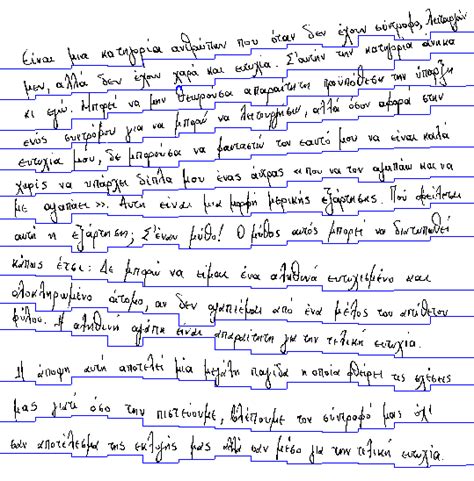 Είναι μια κατηγορία ανθρώπων που όταν δεν έχουν σύντροφο, λειτουργούν
μεν, αλλά δεν έχουν χαρά και ευτυχία. Σ'αυτήν την κατηγορία ανήκα
κι εγώ. Μπορεί να μην θεωρούσα απαραίτητη προϋπόθεση την ύπαρξη
ενός συντρόφου για να μπορώ να λειτουργήσω, αλλά όσον αφορά στην
ευτυχία μου, δε μπορούσα να φανταστώ τον εαυτό μου να είναι καλά
χωρίς να υπάρχει δίπλα μου ένας άντρας «που να τον αγαπάω και να
με αγαπάει». Αυτή είναι μια μορφή μερικής εξάρτησης. Πού οφείλεται
αυτή η εξάρτηση; Σ'έναν μύθο! Ο μύθος αυτός μπορεί να διατυπωθεί
κάπως έτσι: Δε μπορώ να είμαι ένα αληθινά ευτυχισμένο και
ολοκληρωμένο άτομο, αν δεν αγαπιέμαι από ένα μέλος του αντίθετου
φύλου. Η αληθινή αγάπη είναι απαραίτητη για την τελική ευτυχία.
Η άποψη αυτή αποτελεί μία μεγάλη παγίδα η οποία φθείρει τις σχέσεις
μας γιατί όσο την πιστεύουμε, βλέπουμε τον σύντροφό μας όχι
σαν αποτέλεσμα της εκλογής μας αλλά σαν μέσο για την τελική ευτυχία.